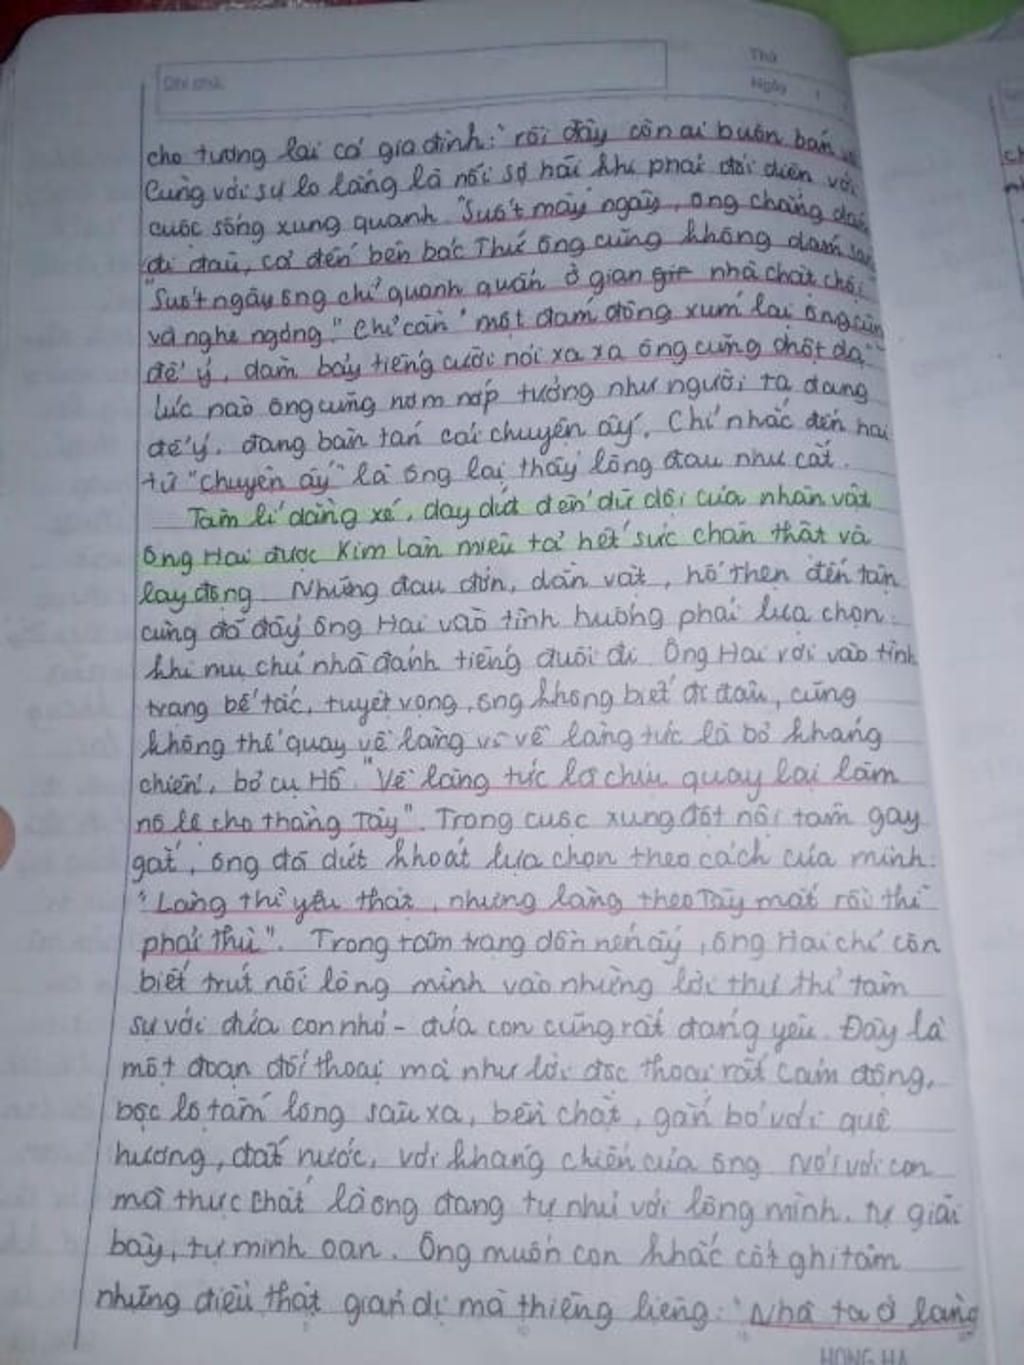 Ghi chú:
Thứ
Ngày
cho tương lai cả gia đình: "rồi đây còn ai buôn bán
Cùng với sự lo lắng là nỗi sợ hãi khi phải đối diện với
cuộc sống xung quanh "Suốt mấy ngày, ông chẳng dám
đi đâu, cả đến bên bác Thứ ông cũng không dám sang
"Suốt ngày ông chỉ quanh quẩn ở gian nhà chật chội
và nghe ngóng" Chỉ cần "một đám đông xúm lại ông cũng
để ý, dăm bảy tiếng cười nói xa xa ông cũng chột dạ"
lúc nào ông cũng nơm nớp tưởng như người ta đang
để ý, đang bàn tán cái chuyện ấy. Chỉ nhắc đến hai
từ "chuyện ấy" là ông lại thấy lòng đau như cắt.
Tâm lí dằng xé, day dứt đến dữ dội của nhân vật
ông Hai được Kim Lân miêu tả hết sức chân thật và
lay động. Những đau đớn, dằn vặt, hổ thẹn đến tận
cùng đã đẩy ông Hai vào tình huống phải lựa chọn
khi mụ chủ nhà đánh tiếng đuổi đi. Ông Hai rơi vào tình
trạng bế tắc, tuyệt vọng, ông không biết đi đâu, cũng
không thể quay về làng vì về làng tức là bỏ kháng
chiến, bỏ cụ Hồ. "Về làng tức là chịu quay lại làm
nô lệ cho thằng Tây". Trong cuộc xung đột nội tâm gay
gắt, ông đã dứt khoát lựa chọn theo cách của mình:
"Làng thì yêu thật, nhưng làng theo Tây mất rồi thì
phải thù". Trong tâm trạng dồn nén ấy, ông Hai chỉ còn
biết trút nỗi lòng mình vào những lời thủ thỉ tâm
sự với đứa con nhỏ - đứa con cũng rất đáng yêu. Đây là
một đoạn đối thoại mà như lời độc thoại rất cảm động,
bộc lộ tấm lòng sâu xa, bền chặt, gắn bó với quê
hương, đất nước, với kháng chiến của ông. Nói với con
mà thực chất là ông đang tự nhủ với lòng mình, tự giãi
bày, tự minh oan. Ông muốn con khắc cốt ghi tâm
những điều thật giản dị mà thiêng liêng: "Nhà ta ở làng
HONG HA